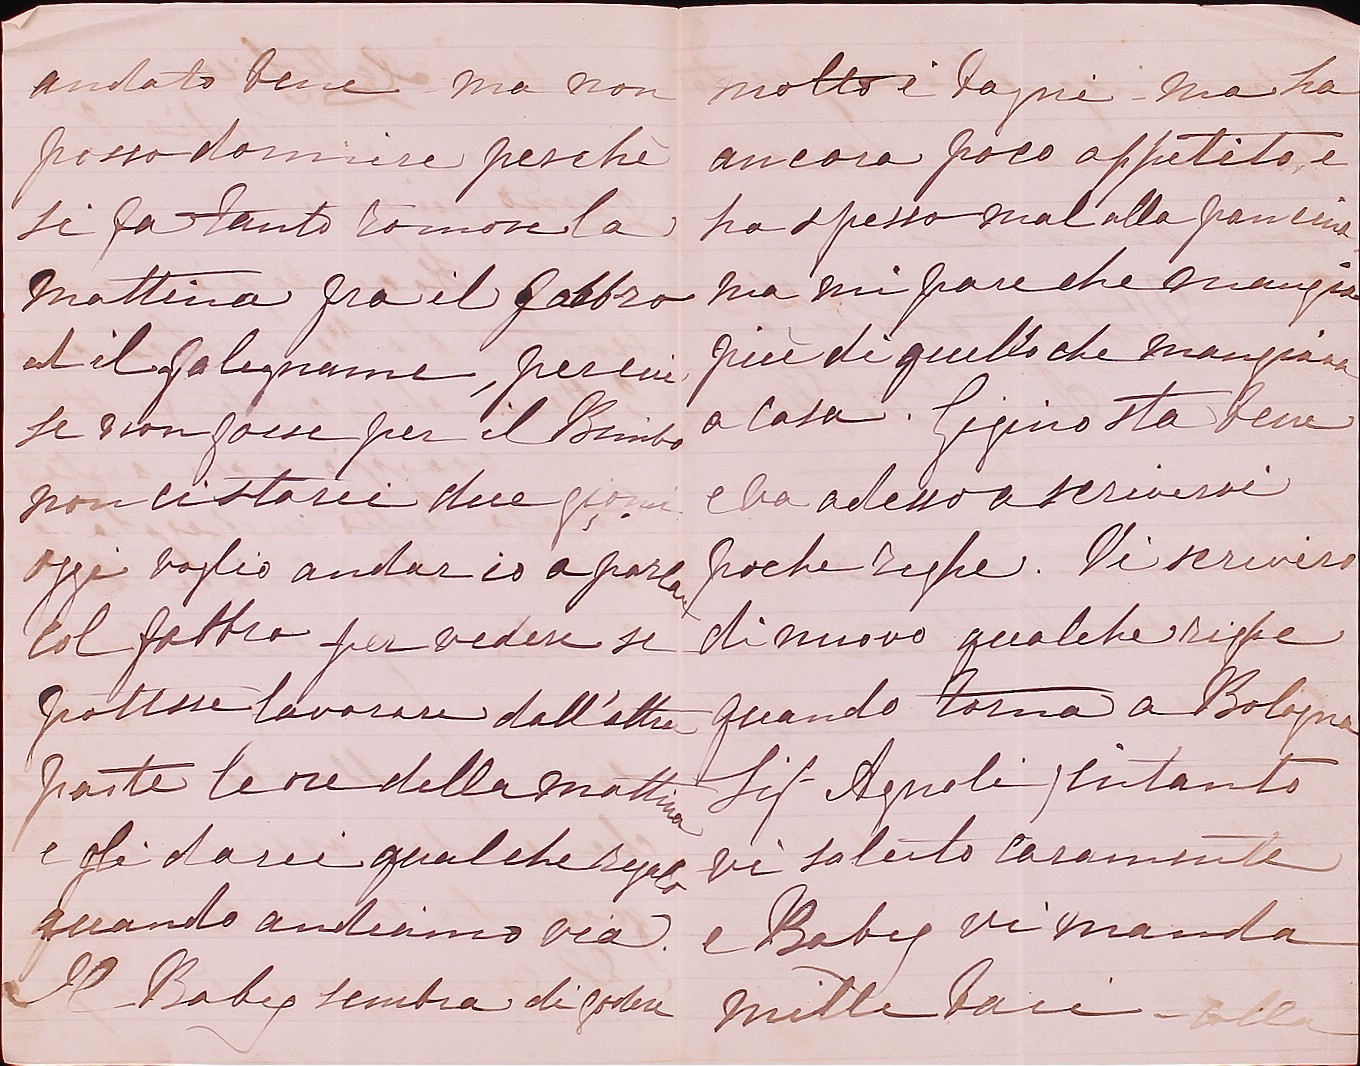 andato bene - ma non
posso dormire perchè
si fa tanto romore la
mattina fra il fabbro
ed il falegname, per cui
se non fosse per il Bimbo
non ci starei due giorni
oggi voglio andar io a parlare
col fabbro per vedere se
potesse lavorare dall'altra
parte le ore della mattina
e gli darei qualche regalo
quando andiamo via.
Il Baby sembra di godere
molto i bagni - ma ha
ancora poco appetito, e
ha spesso mal alla pancina
ma mi pare che mangia
più di quello che mangiava
a casa. Gigino sta bene
e va adesso a scrivervi
poche righe. Vi scriverò
di nuovo qualche righe
quando torna a Bologna
Sig Agnoli, intanto
vi saluto caramente
e Baby vi manda
mille baci -